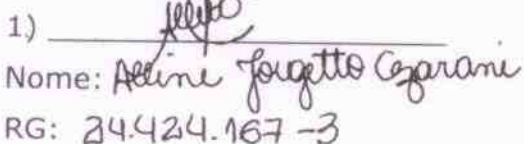 1)
Nome: Alline Forgetto Cezarani
RG: 24.424.167-3